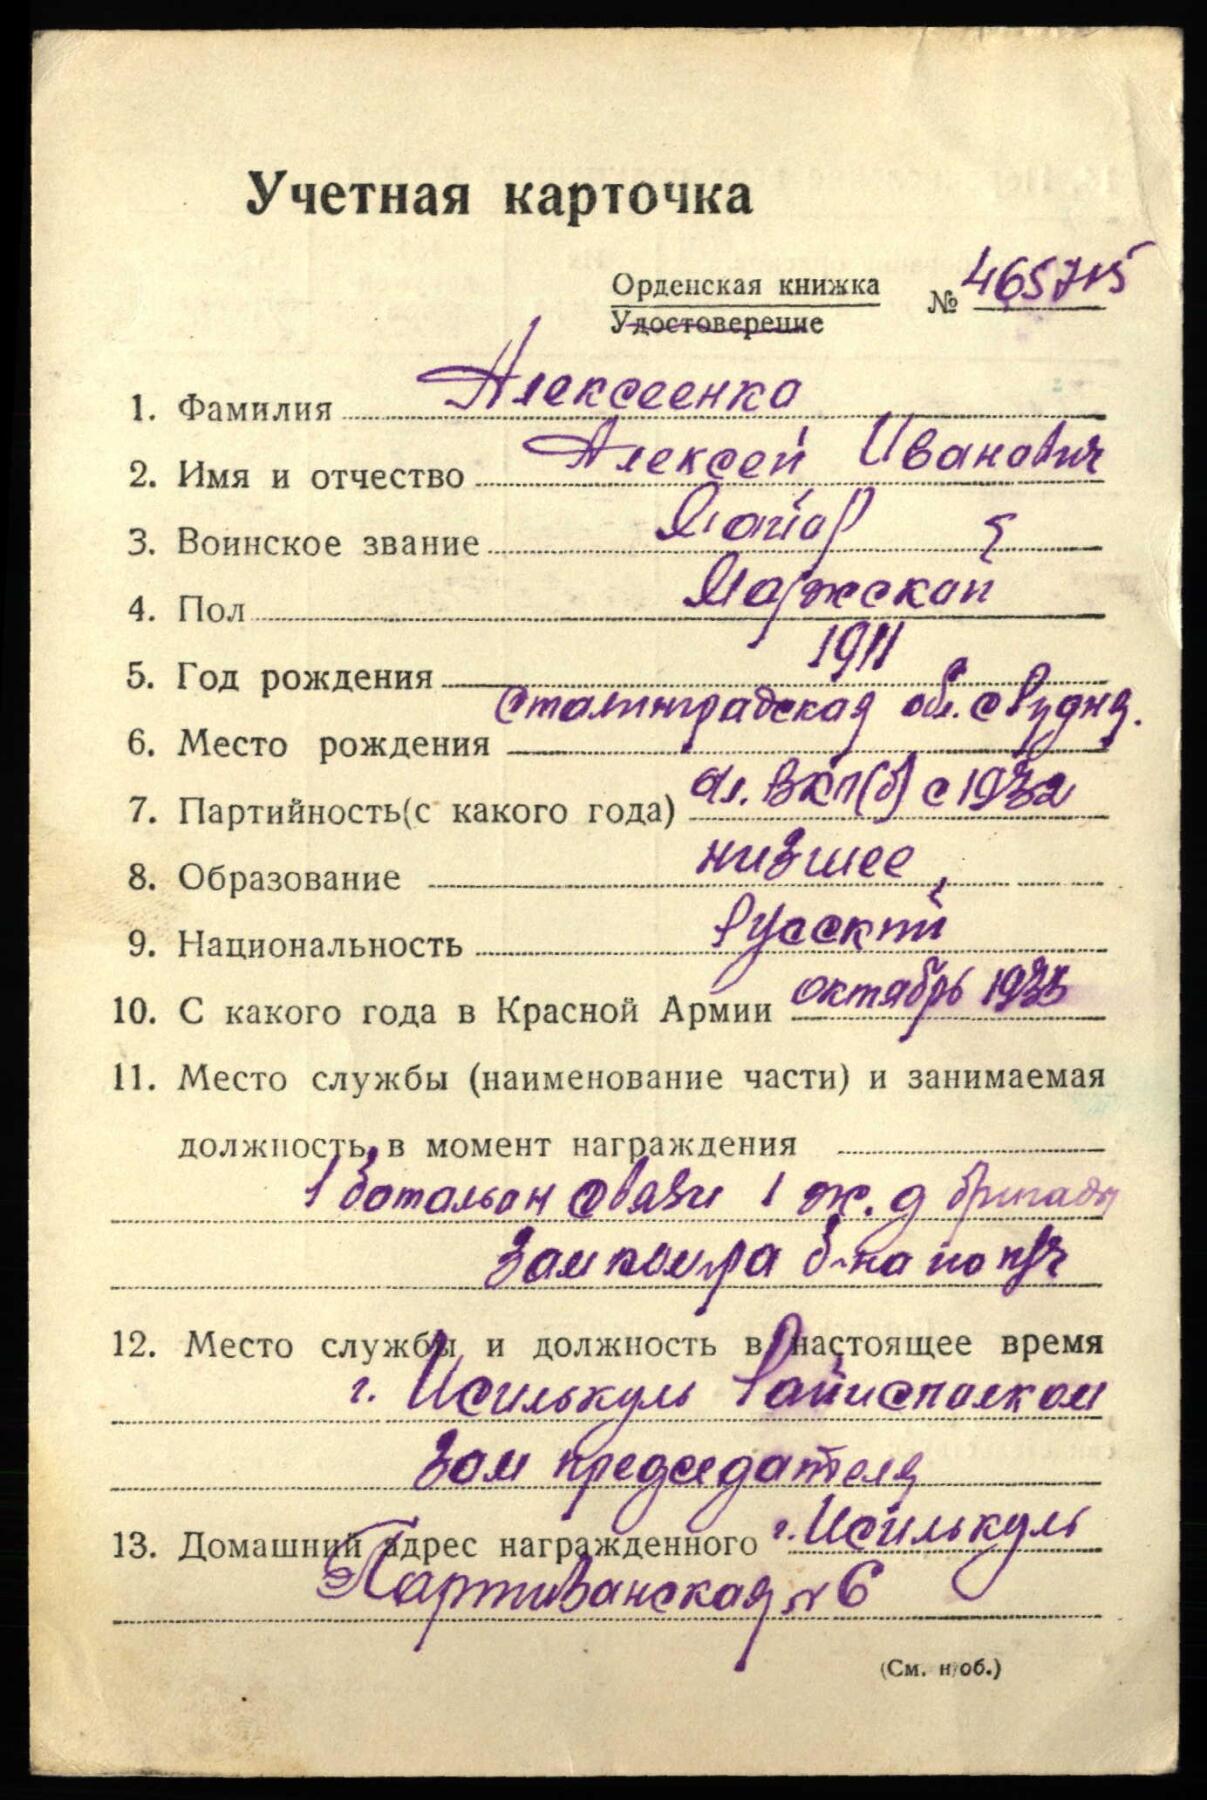 Учетная карточка
Орденская книжка № 465715
Удостоверение
1. Фамилия Алексеенко
2. Имя и отчество Алексей Иванович
3. Воинское звание Майор
4. Пол Мужской
5. Год рождения 1911
6. Место рождения Сталинградская обл. с Рудня.
7. Партийность (с какого года) чл. ВКП(б) с 1932
8. Образование низшее
9. Национальность Русский
10. С какого года в Красной Армии октябрь 1933
11. Место службы (наименование части) и занимаемая
должность в момент награждения
1 батальон связи 1 ж.д бригады
Зам ком-ра б-на по п/ч
12. Место службы и должность в настоящее время
г. Исилькуль Райисполком
Зам председателя
13. Домашний адрес награжденного г. Исилькуль
Партизанская № 6
(См. н/об.)